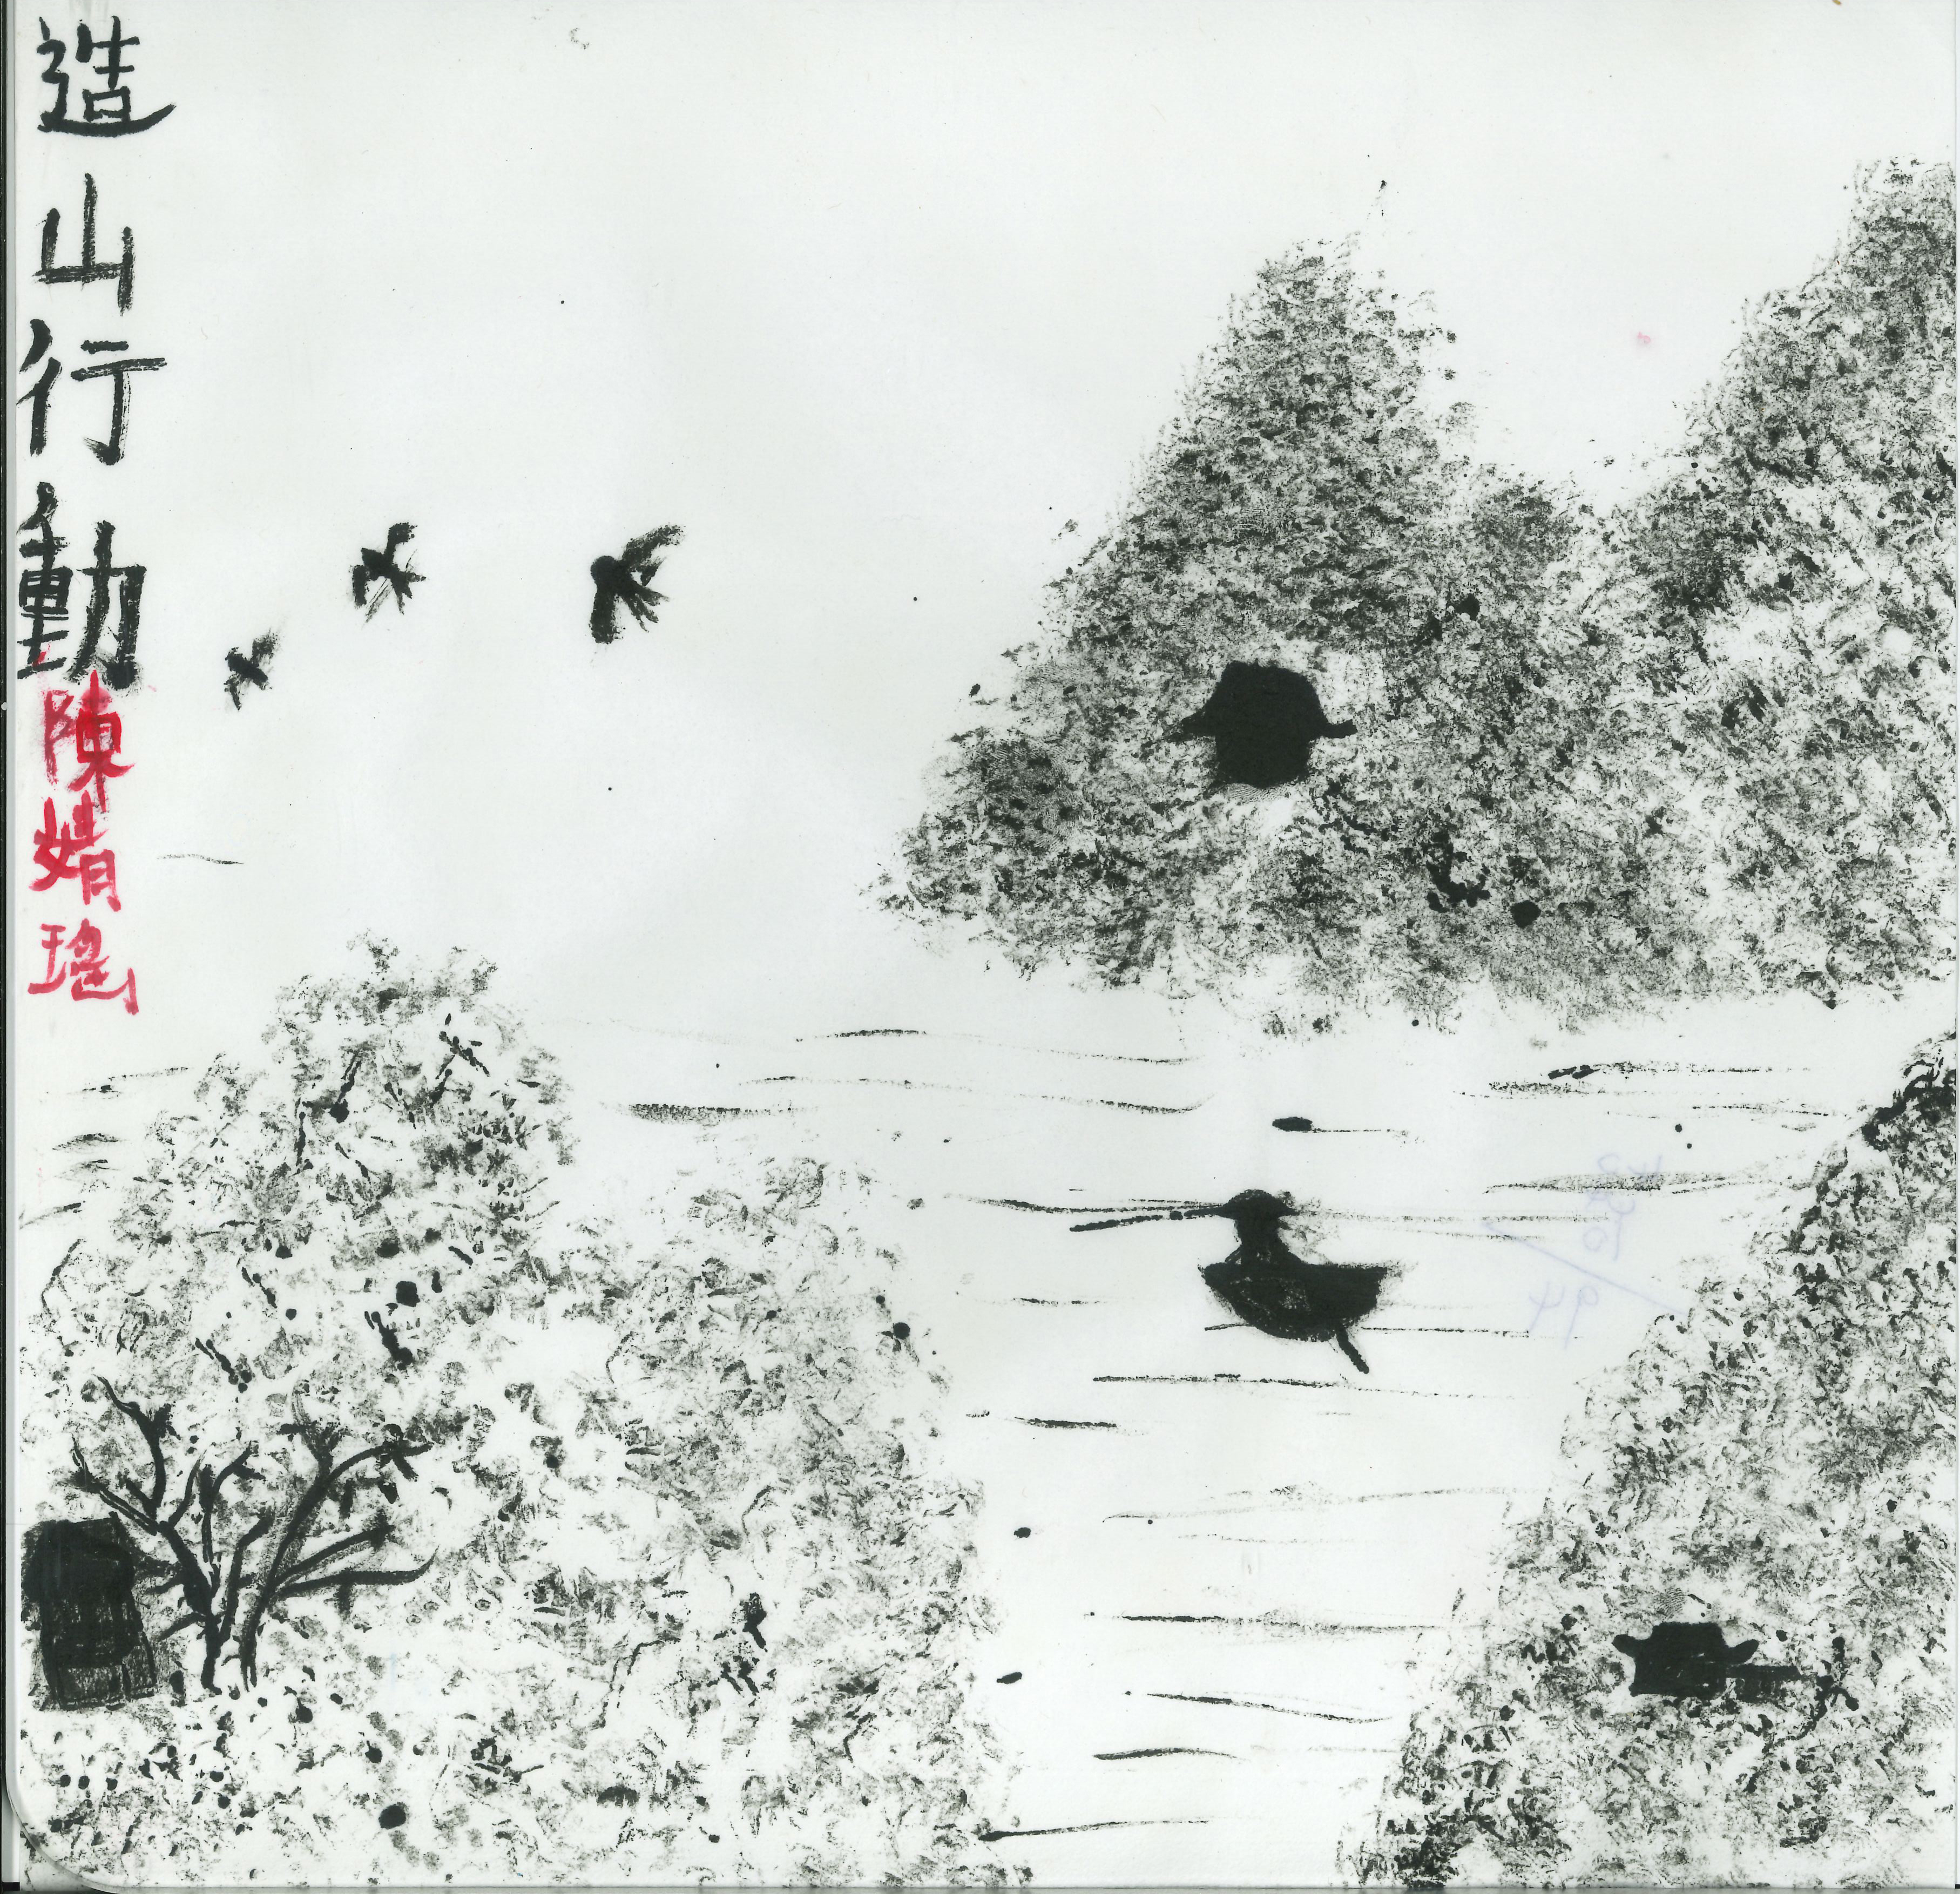 造山行動
陳婧瑤